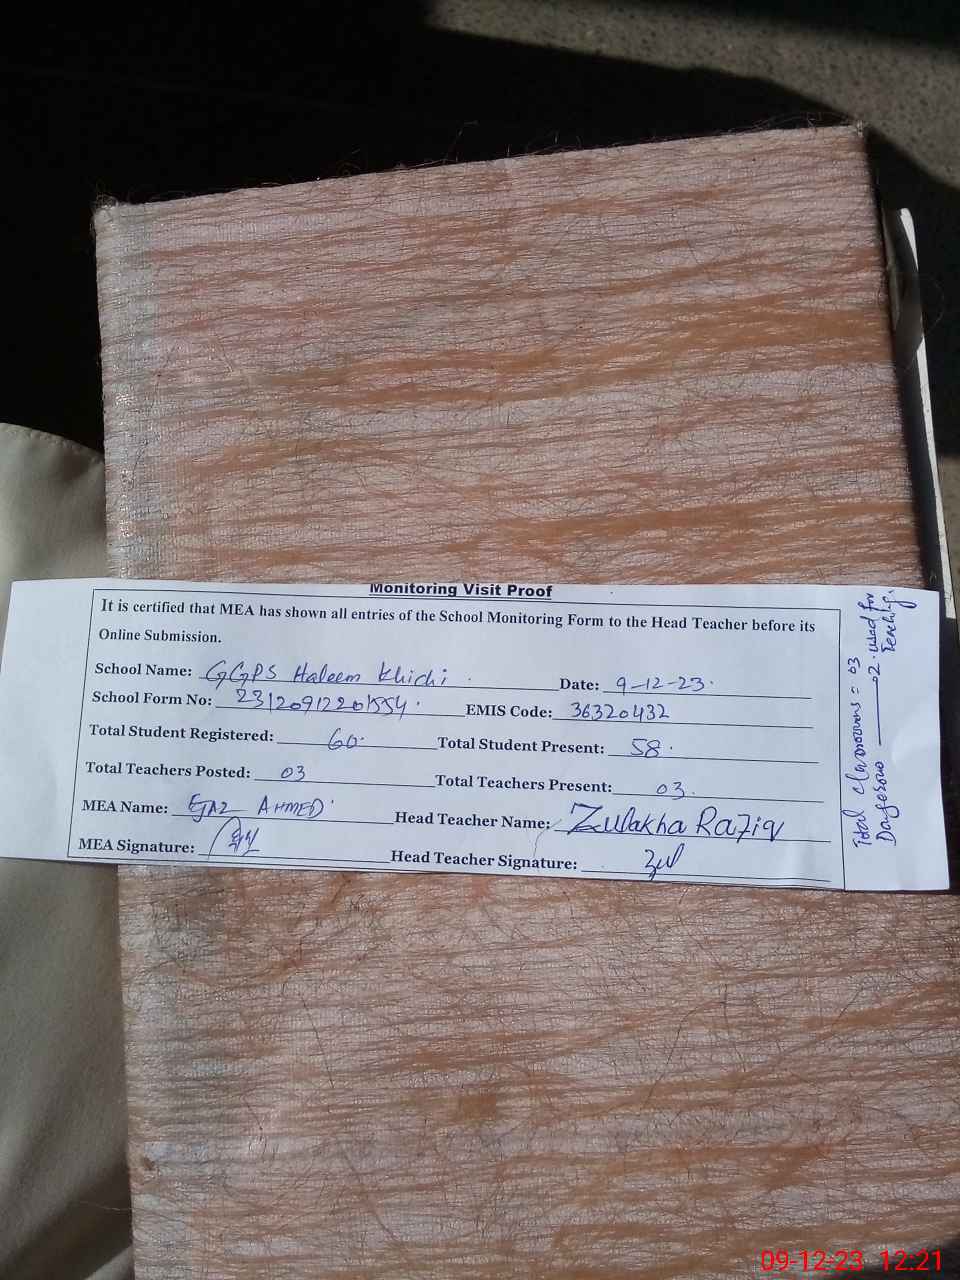 Monitoring Visit Proof
It is certified that MEA has shown all entries of the School Monitoring Form to the Head Teacher before its
Online Submission.
School Name: GGPS Haleem Khichi Date: 9-12-23
School Form No: EMIS Code: 36320432
Total Student Registered: 60 Total Student Present: 58
Total Teachers Posted: 03 Total Teachers Present: 03
MEA Name: EJAZ AHMED Head Teacher Name: Zulakha Rafiq
MEA Signature: Head Teacher Signature: Zul
Total classrooms = 03
Dangerous 02 used for
Teaching.
09-12-23 12:21